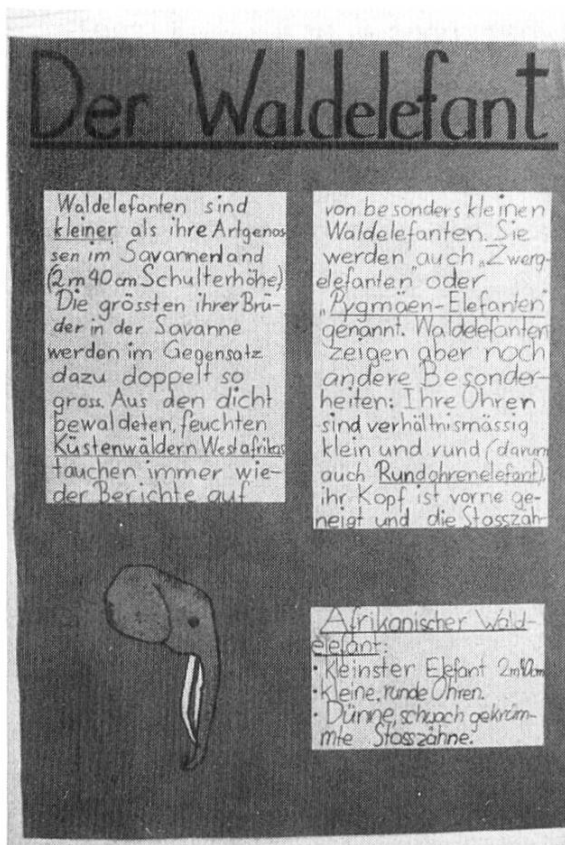 Der Waldelefant
Waldelefanten sind
kleiner als ihre Artgenos
sen im Savannenland
(2m 40cm Schulterhöhe)
Die grössten ihrer Brü-
der in der Savanne
werden im Gegensatz
dazu doppelt so
gross. Aus den dicht
bewaldeten, feuchten
Küstenwäldern Westafrikas
tauchen immer wie-
der Berichte auf
von besonders kleinen
Waldelefanten. Sie
werden auch „Zwerg-
elefanten" oder
„Pygmäen-Elefanten"
genannt. Waldelefanten
zeigen aber noch
andere Besonder-
heiten: Ihre Ohren
sind verhältnismässig
klein und rund (darum
auch Rundohrenelefant),
ihr Kopf ist vorne ge-
neigt und die Stosszäh-
Afrikanischer Wald-
elefant:
· Kleinster Elefant 2m40cm
· Kleine, runde Ohren.
· Dünne, schwach gekrüm-
mte Stosszähne.